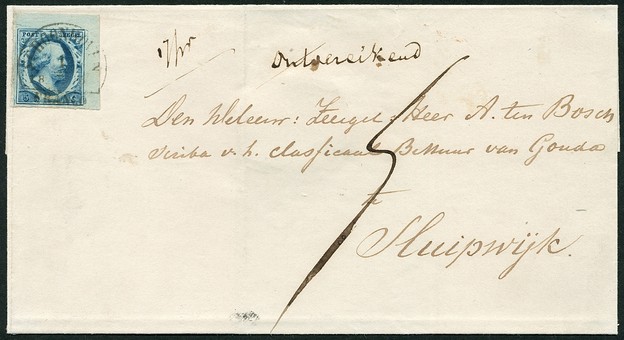 POST ZEGEL
5 C
17/gr
ontoereikend
5
Den Weleerw: Zeergel. Heer A. ten Bosch
Scriba v. h. classicaal Bestuur van Gouda
te
Sluipwijk.